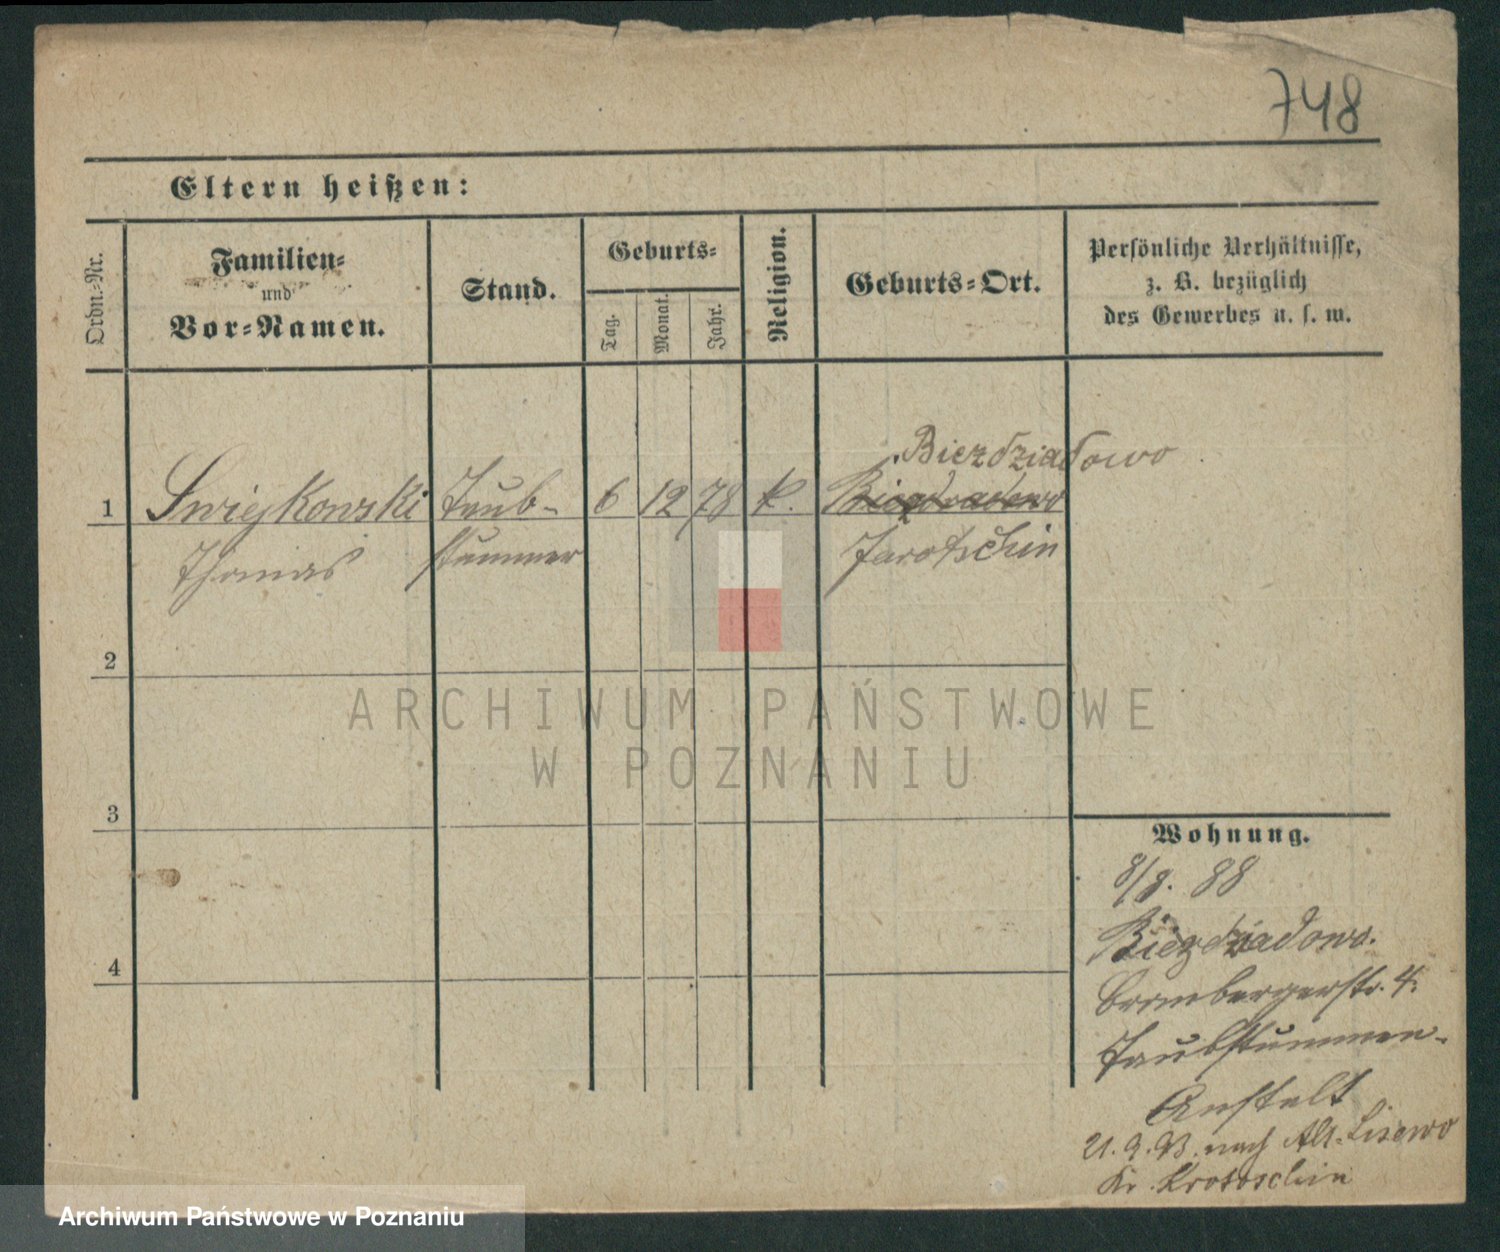 748
Eltern heißen:
Ordn.-Nr.
Familien-
und
Vor-Namen.
Stand.
Geburts-
Tag.
Monat.
Jahr.
Religion.
Geburts-Ort.
Persönliche Verhältnisse,
z. B. bezüglich
des Gewerbes u. s. w.
Biezdziadowo
1 Swiejkowski Taub- 6 12 78 k.
Thomas stummer Jarotschin
2
3
4
Wohnung.
8/8. 88
Biezdziadowo.
Brombergerstr. 4.
Taubstummen-
Anstalt
21. 9. 93. nach Alt-Lisewo
Kr. Krotoschin
ARCHIWUM PAŃSTWOWE
W POZNANIU
Archiwum Państwowe w Poznaniu